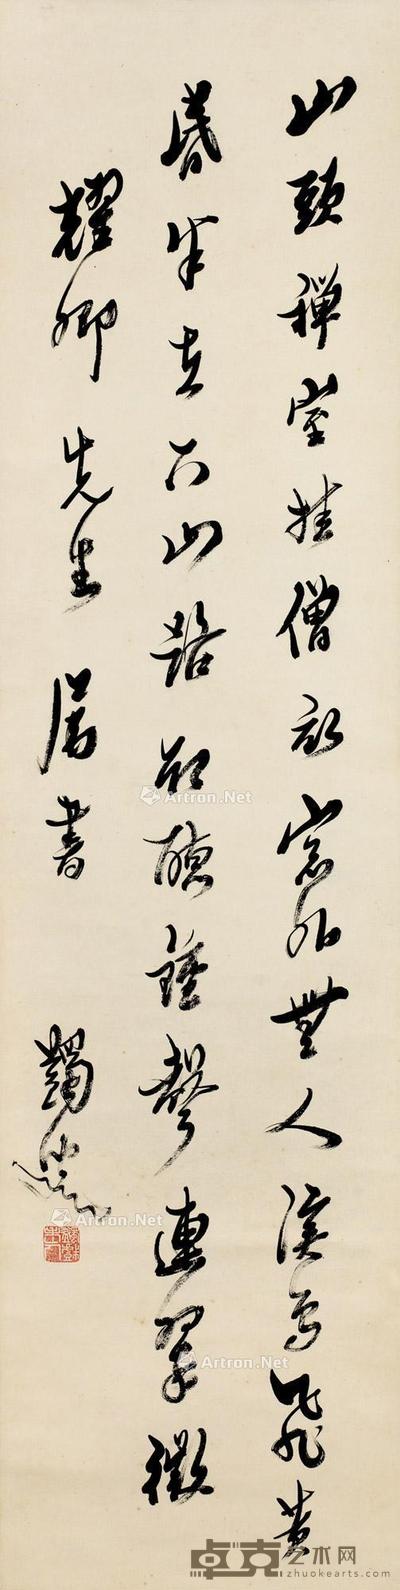 山頭禪室挂僧衣窗外無人溪鳥飛黃
昏半在下山路却聽鐘聲連翠微
耀卿先生屬書
蠲
Artron.Net
Artron.Net
Artron.Net
Artron.Net
卓克艺术网
www.zhuokearts.com